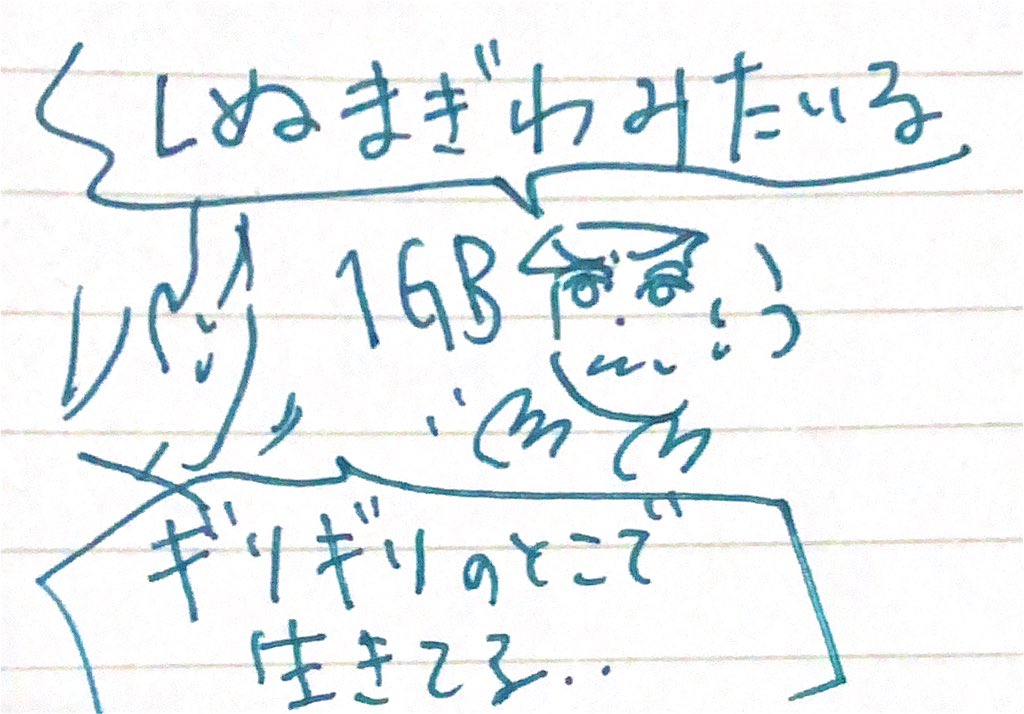 しぬまぎわみたいる
1GB
ギリギリのとこで
生きてる..